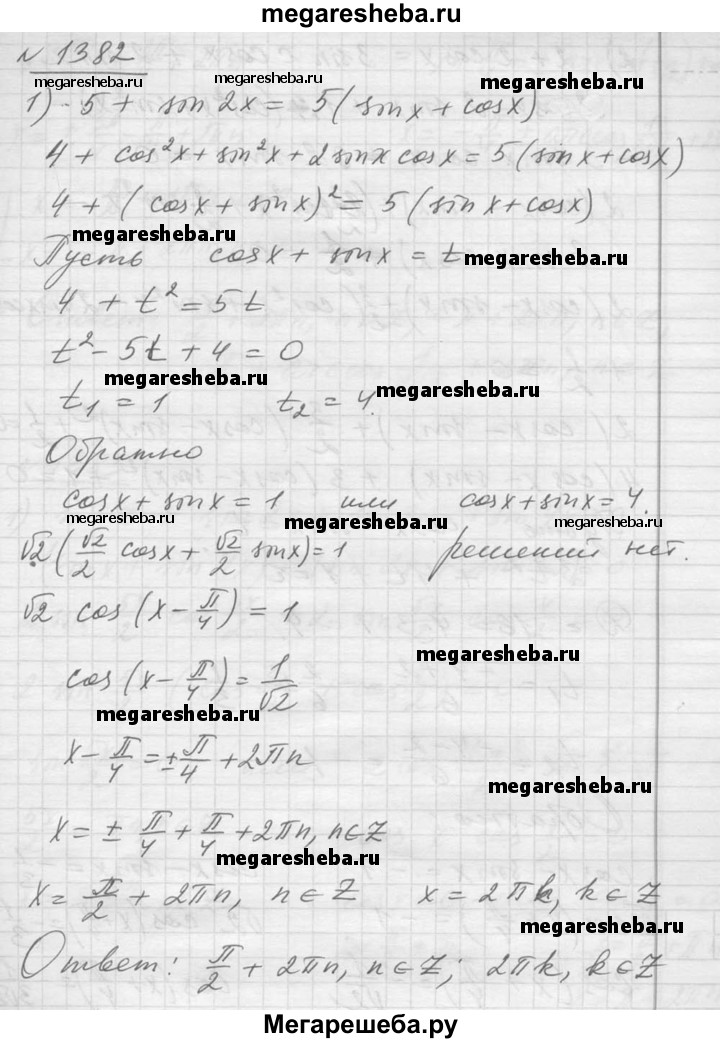 megaresheba.ru
№ 1382
megaresheba.ru megaresheba.ru megaresheba.ru
1) 5 + sin 2x = 5(sinx + cosx)
4 + cos²x + sin²x + 2sinx cosx = 5(sinx + cosx)
4 + (cosx + sinx)² = 5(sinx + cosx)
megaresheba.ru
Пусть cosx + sinx = t
megaresheba.ru
4 + t² = 5t
t² - 5t + 4 = 0
megaresheba.ru megaresheba.ru
t₁ = 1 t₂ = 4.
Обратно
cosx + sinx = 1 или cosx + sinx = 4.
megaresheba.ru megaresheba.ru megaresheba.ru
√2(√2/2 cosx + √2/2 sinx) = 1 решений нет.
√2 cos(x - π/4) = 1
megaresheba.ru
cos(x - π/4) = 1/√2
megaresheba.ru
x - π/4 = ± π/4 + 2πn
megaresheba.ru
x = ± π/4 + π/4 + 2πn, n∈Z
megaresheba.ru
x = π/2 + 2πn, n∈Z x = 2πk, k∈Z
megaresheba.ru
Ответ: π/2 + 2πn, n∈Z; 2πk, k∈Z
Мегарешеба.ру